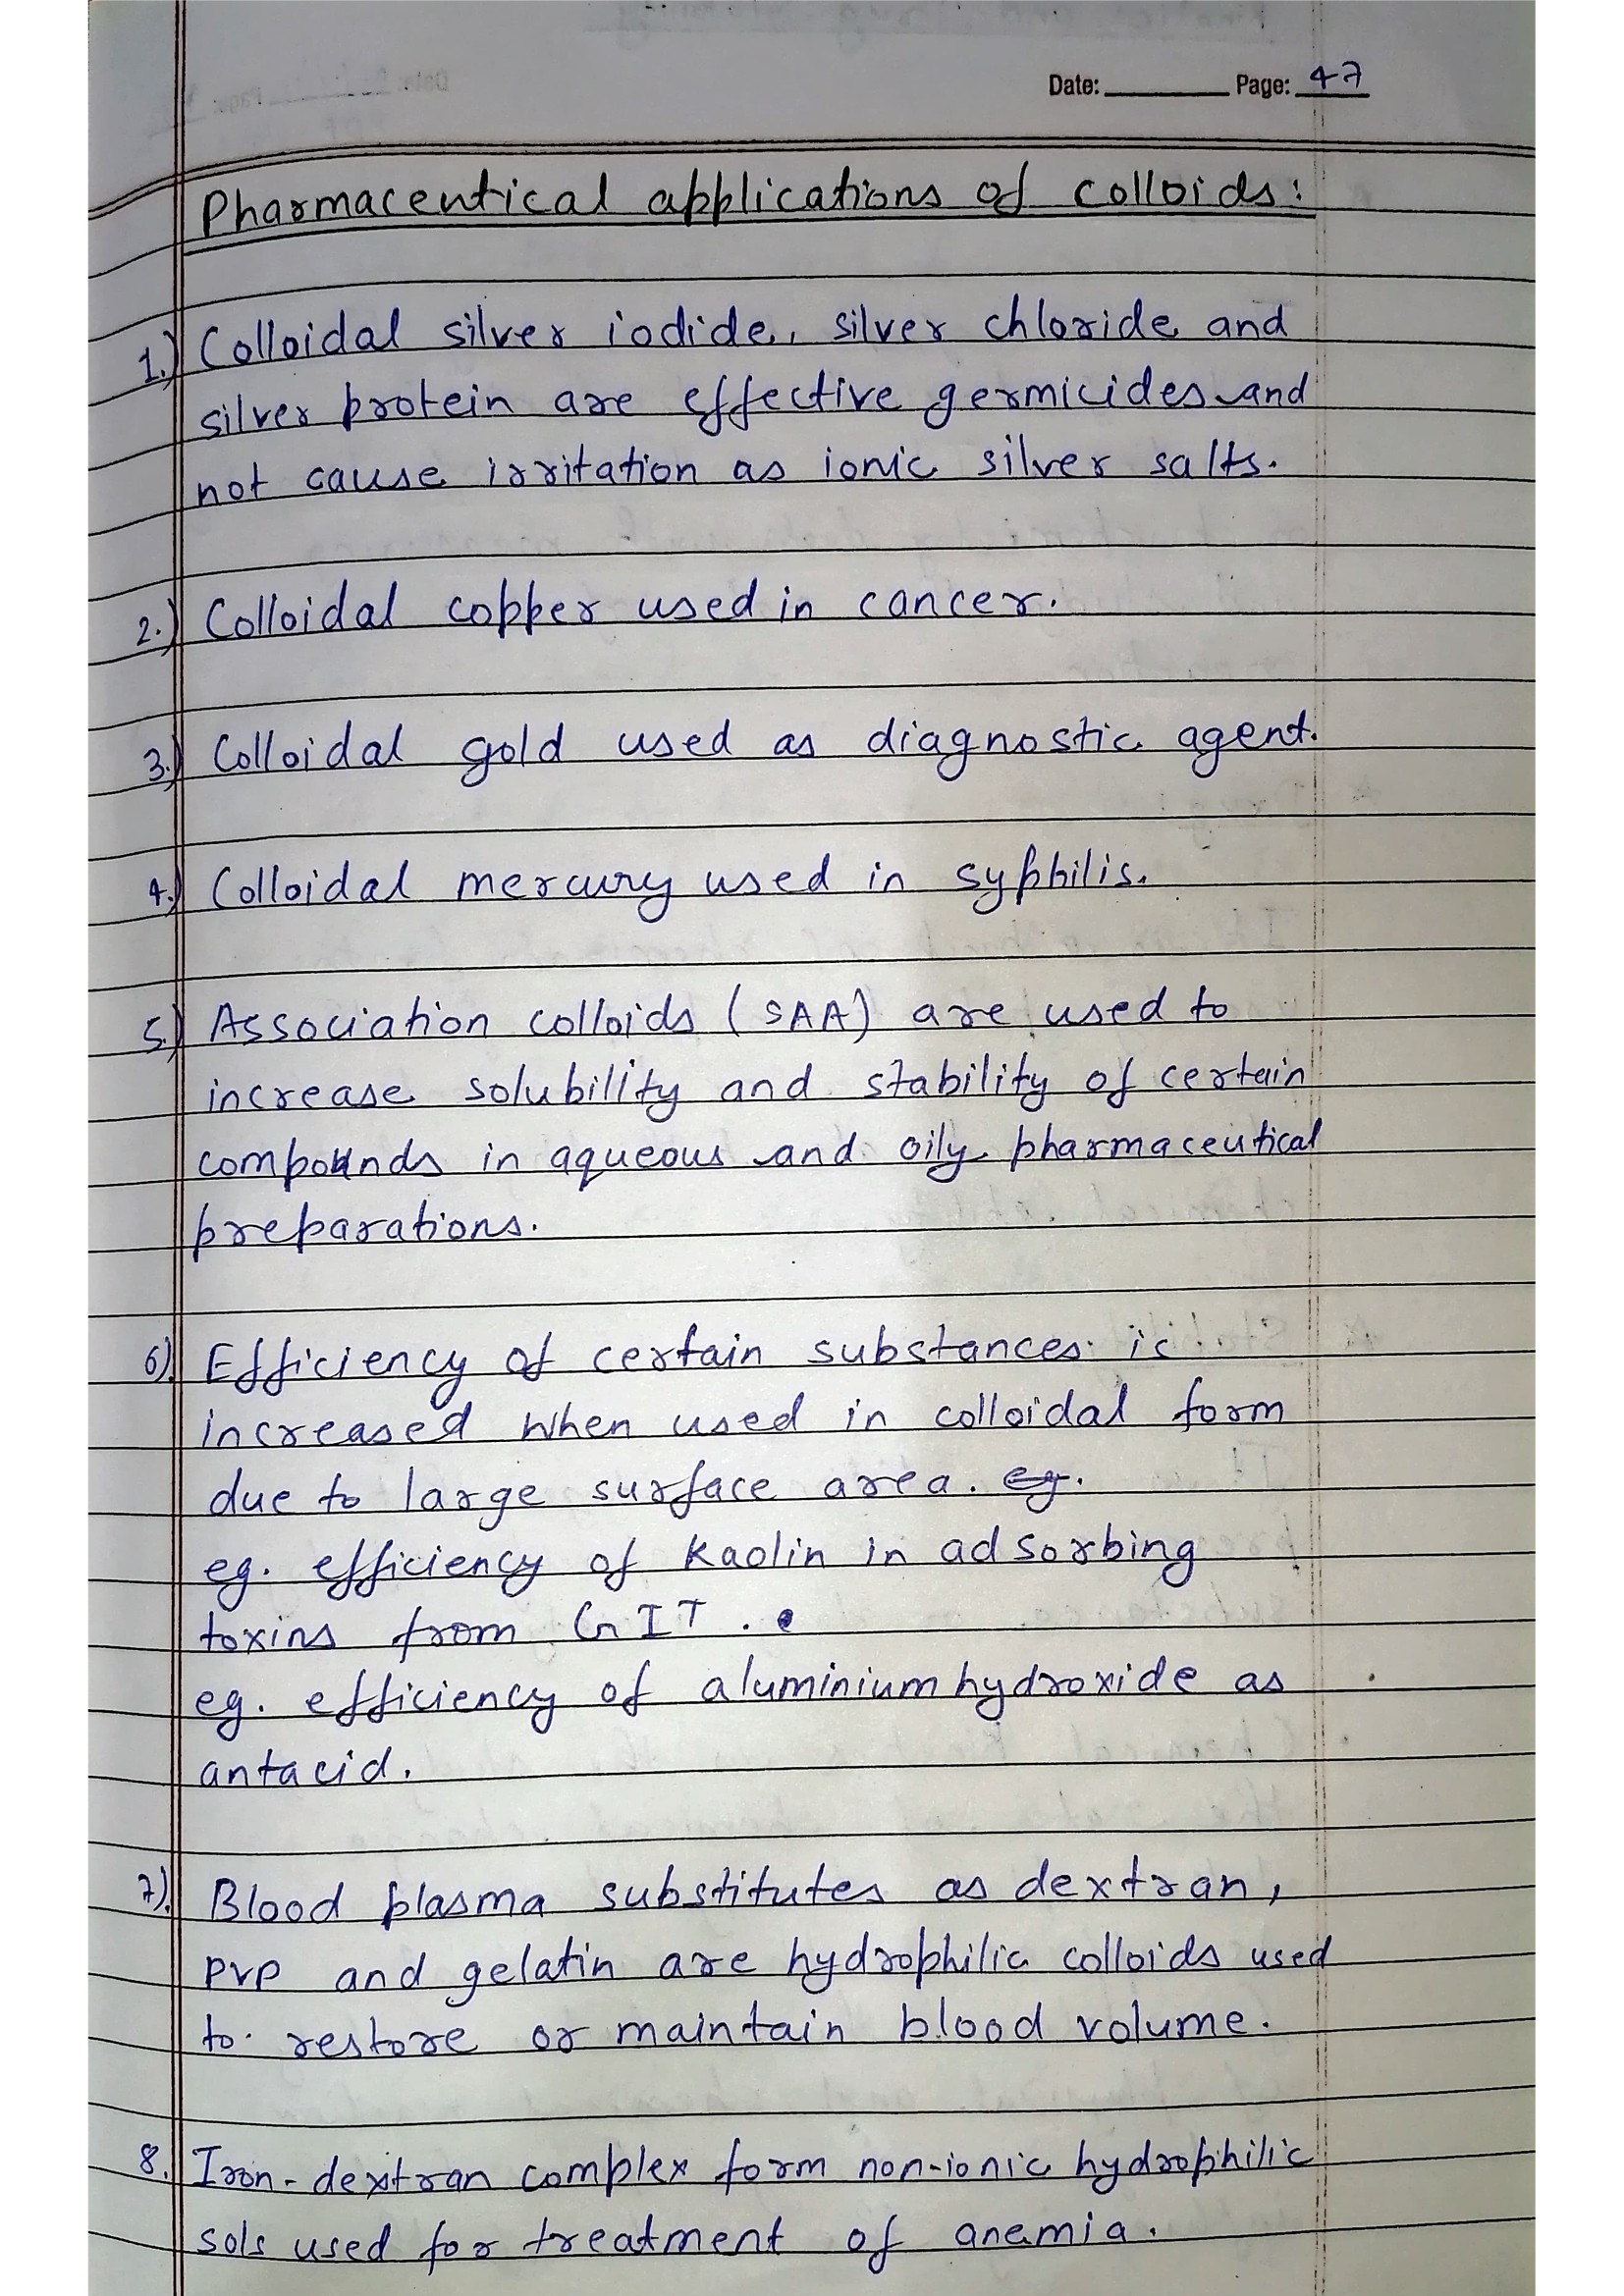 Date: Page: 47
Pharmaceutical applications of colloids:
1.) Colloidal silver iodide, silver chloride and
silver protein are effective germicides and
not cause irritation as ionic silver salts.
2.) Colloidal copper used in cancer.
3.) Colloidal gold used as diagnostic agent.
4.) Colloidal mercury used in syphilis.
5.) Association colloids (SAA) are used to
increase solubility and stability of certain
compounds in aqueous and oily pharmaceutical
preparations.
6) Efficiency of certain substances is
increased when used in colloidal form
due to large surface area. eg.
eg. efficiency of kaolin in adsorbing
toxins from GIT.
eg. efficiency of aluminium hydroxide as
antacid.
7). Blood plasma substitutes as dextran,
PVP and gelatin are hydrophilic colloids used
to restore or maintain blood volume.
8. Iron-dextran complex form non-ionic hydrophilic
sols used for treatment of anemia.